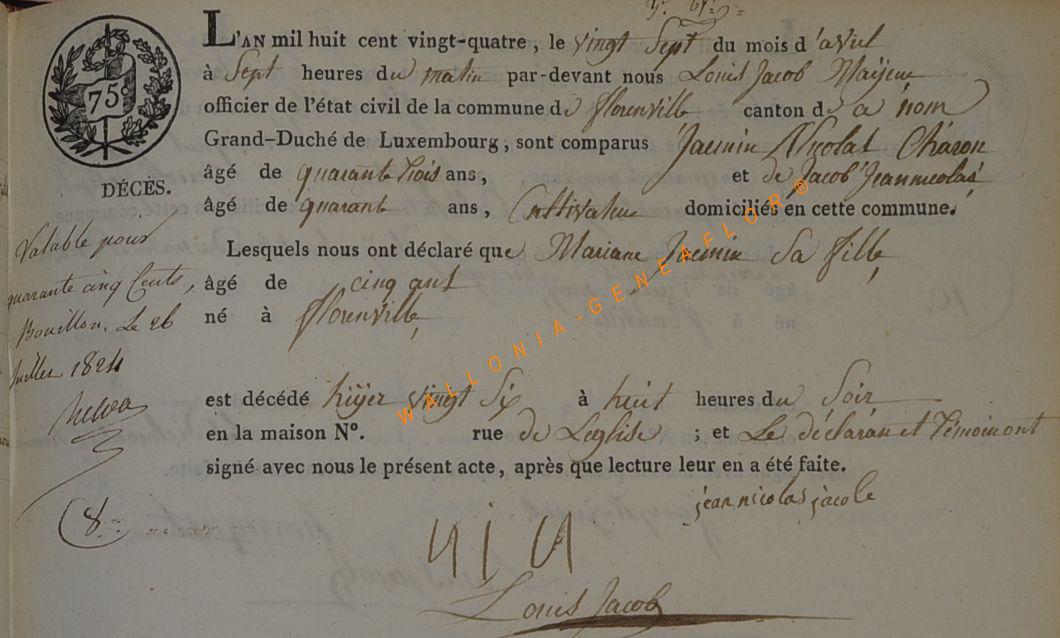 75c
DÉCÈS.
L'AN mil huit cent vingt-quatre, le vingt Sept du mois d'avril
à Sept heures du matin par-devant nous Louis Jacob Maÿeur
officier de l'état civil de la commune de florenville canton de ce nom
Grand-Duché de Luxembourg, sont comparus Jacmin Nicolas
âgé de quarante trois ans, et de Jacob Jeannicolas
âgé de quarant ans, Cultivateur domiciliés en cette commune.
Lesquels nous ont déclaré que Mariane Jacmin Sa fille
âgé de cinq ans
né à florenville
est décédé hiÿer vingt Six à huit heures du Soir
en la maison N°. rue de Leglise ; et Le déclarant et témoin ont
signé avec nous le présent acte, après que lecture leur en a été faite.
Valable pour
quarante cinq Cents,
Bouillon, Le 26
Juillet 1824
jean nicolas jacob
Louis Jacob
WALLONIA-GENEAFLOR®